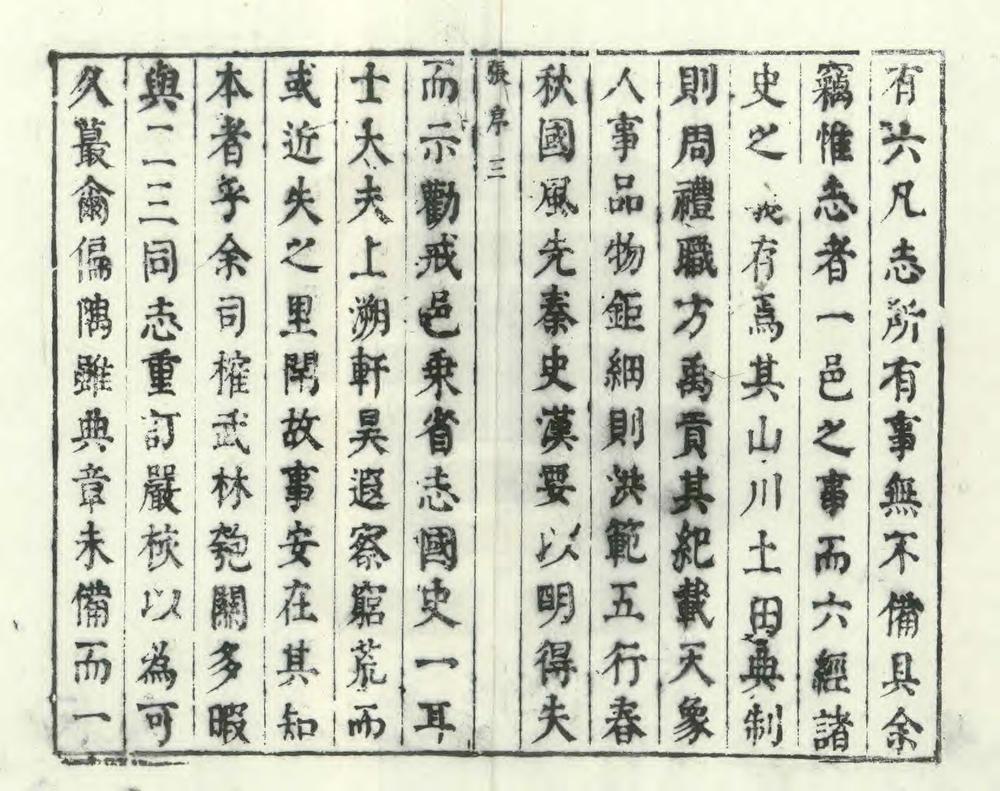 有六凡志所有事無不備具余
竊惟志者一邑之事而六經諸
史之法有焉其山川土田典制
則周禮職方禹貢其紀載天象
人事品物鉅細則洪範五行春
秋國風先秦史漢要以明得失
張序 三
而示勸戒邑乗省志國史一耳
士大夫上溯軒昊遐察窮荒而
或近失之里閈故事安在其知
本者乎余司榷武林匏關多暇
與二三同志重訂嚴核以為可
久蕞爾偏隅雖典章未備而一